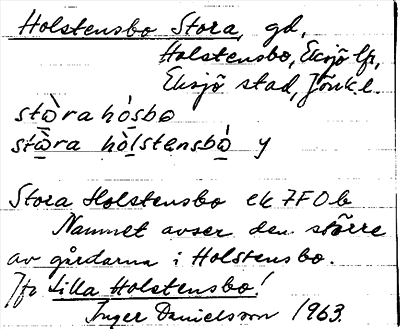 Holstensbo Stora, gd,
Holstensbo, Eksjö lfs,
Eksjö stad, Jönk. l.
stòra hósbo
stòra hòlstensbó y
Stora Holstensbo ek 7F0b
Namnet avser den större
av gårdarna i Holstensbo.
Jfr Lilla Holstensbo!
Inger Danielsson 1963.